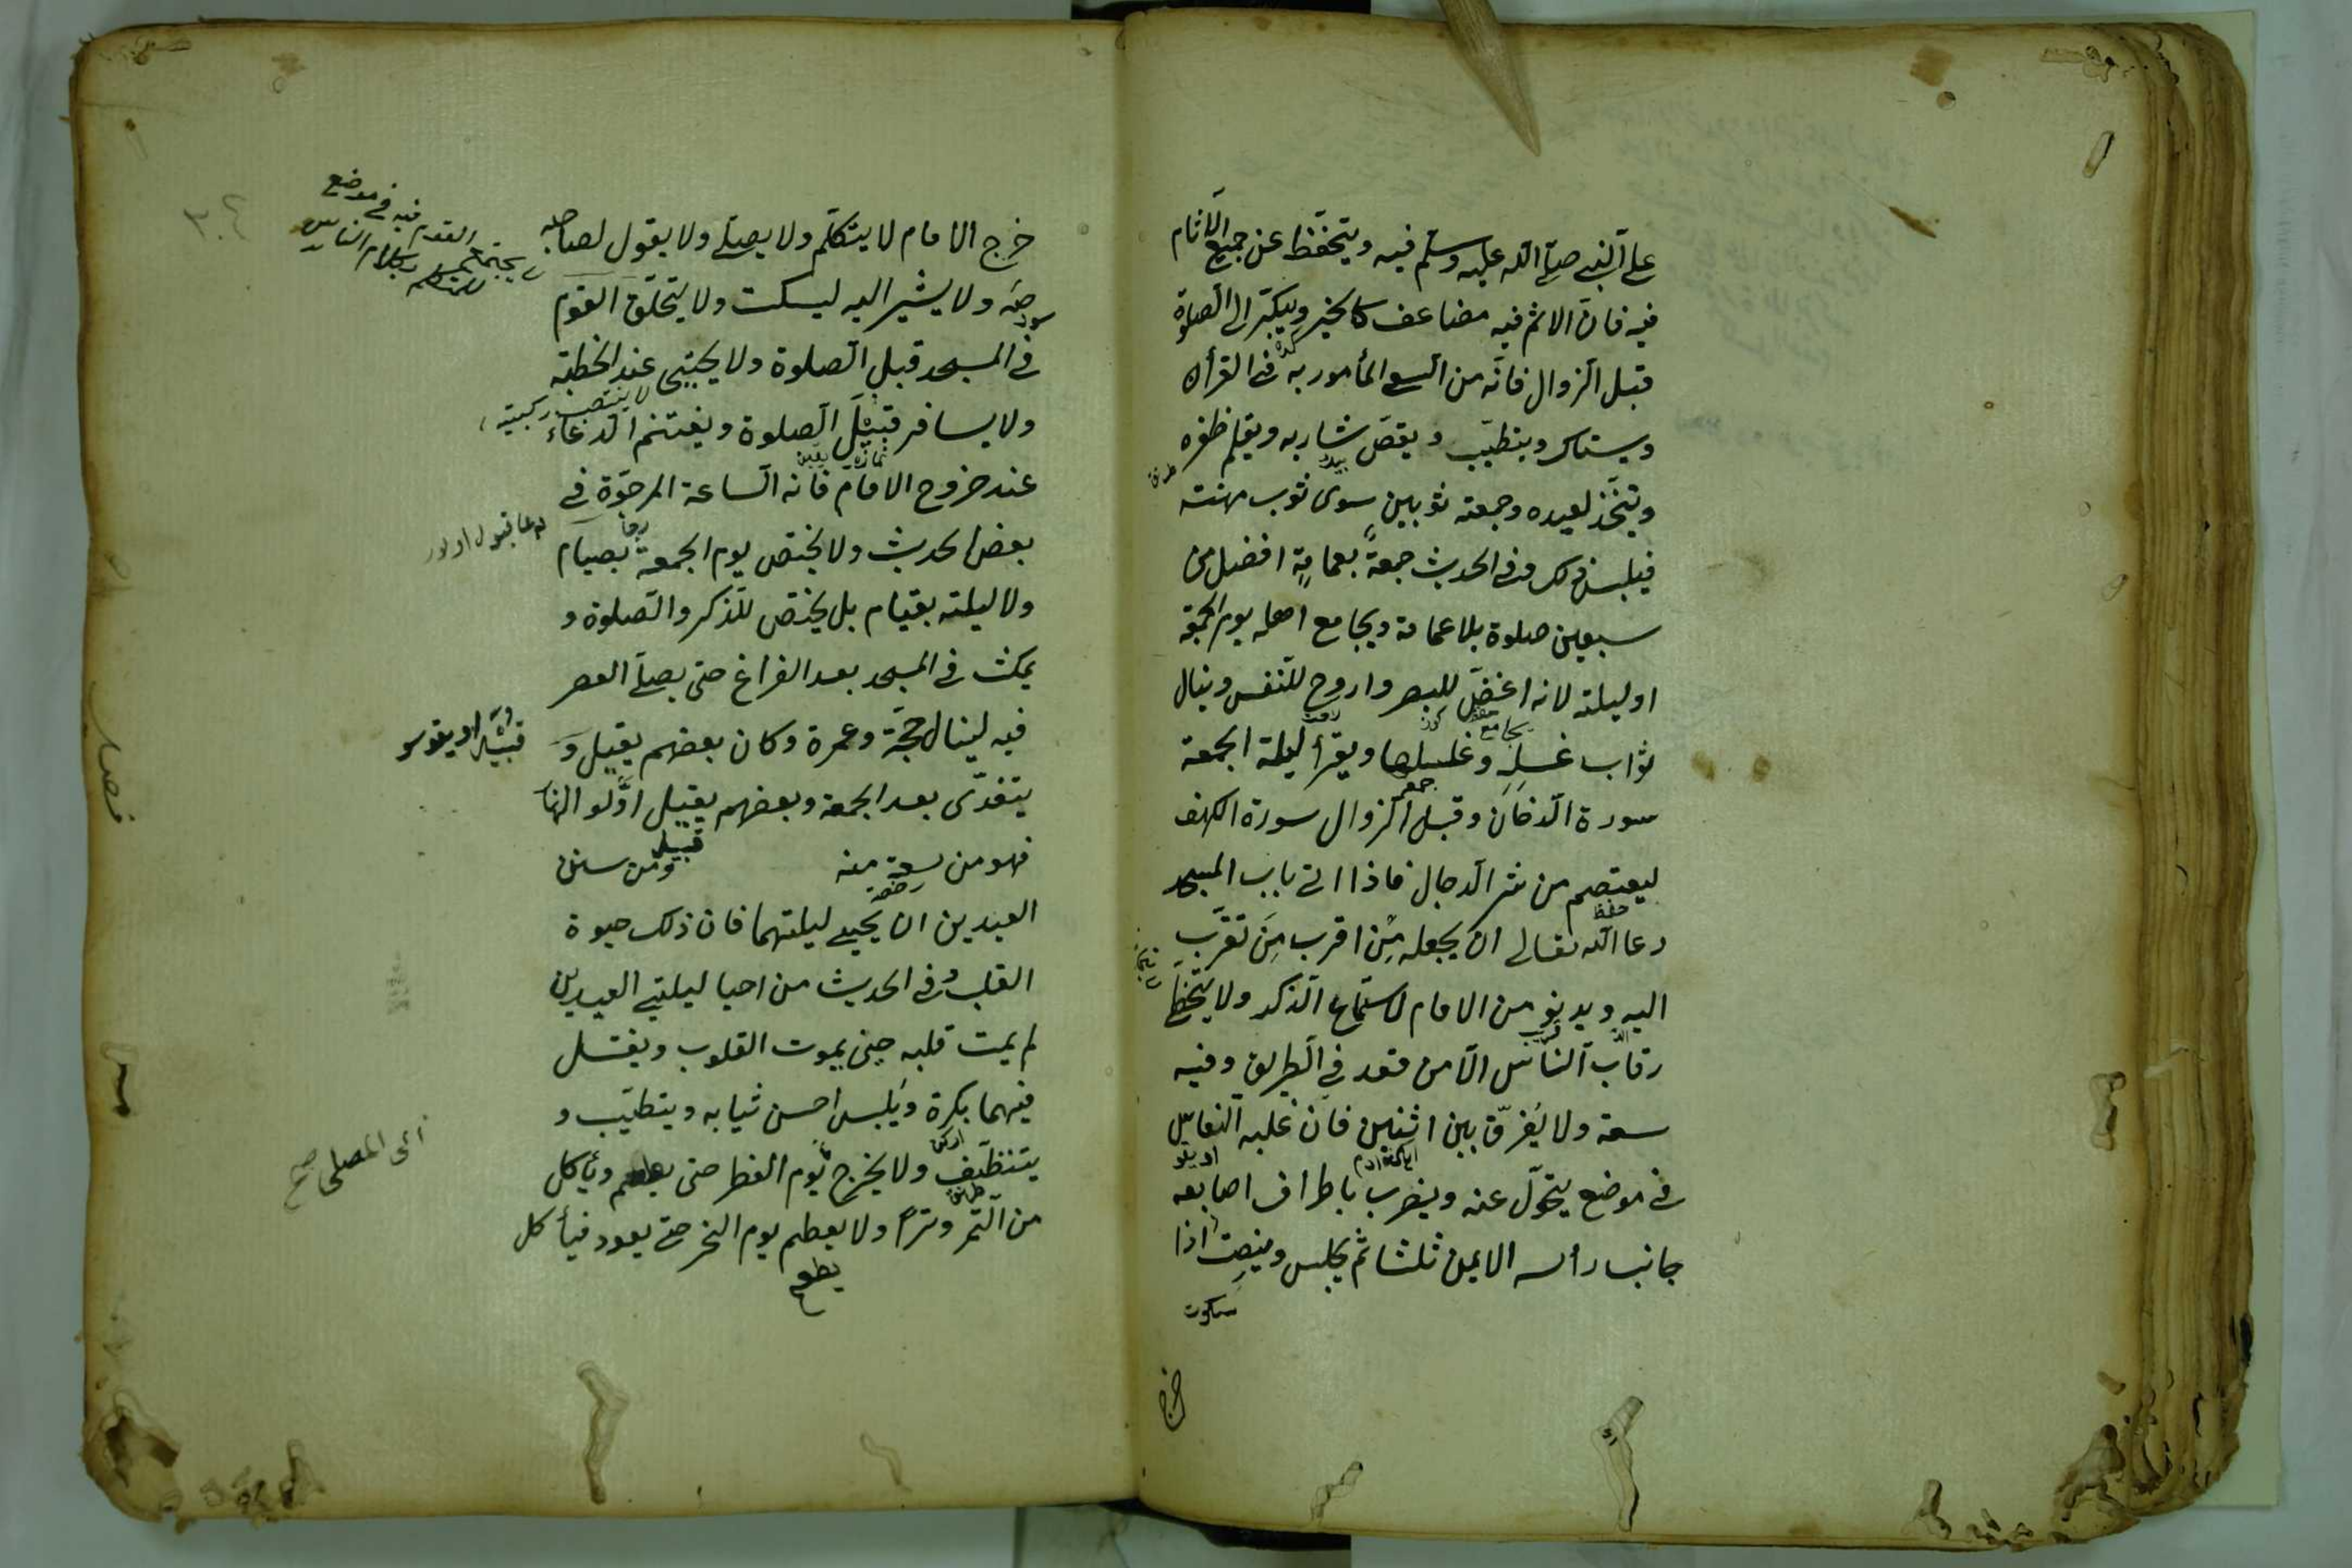 على النبي صلى الله عليه وسلم فيه ويتحفظ عن جميع الآثام
فيه فان الاثم فيه مضاعف كالخير ويبكّر الى الصلوة
قبل الزوال فانّه من السعى المأمور به فى القرأن
ويستاك ويتطيّب ويقصّ شاربه ويقلم ظفره
ويتخذ لعيده وجمعته ثوبين سوى ثوب مهنته
فيلبس ذلك وفى الحديث جمعةٌ بعمامةٍ افضل من
سبعين صلوة بلا عمامة ويجامع اهله يوم الجمعة
او ليلته لانه اغضّ للبصر واروح للنفس وينال
ثواب غسلِهِ وغسلها ويقرأ ليلة الجمعة
سورة الدخان وقبل الزوال سورة الكهف
ليعتصم من شر الدجال فاذا اتى باب المسجد
دعا الله تعالى ان يجعله مِن اقرب مَن تقرّب
اليه ويدنو من الامام لاستماع الذكر ولا يتخطّى
رقاب الناس الّا من قعد فى الطريق وفيه
سعة ولا يفرّق بين اثنين فان غلبه النعاس
فى موضع يتحوّل عنه ويضرب باطراف اصابعه
جانب رأسه الايمن ثلثا ثم يجلس وينصت اذا
سكوت
خرج
خرج الامام لا يتكلّم ولا يصلى ولا يقول لصاحبه
صَه ولا يشير اليه ليسكت ولا يتحلّق القوم
فى المسجد قبل الصلوة ولا يحتبى عند الخطبة
لا ينتصب ركبتيه
ولا يسافر قبيل الصلوة ويغتنم الدعاء
عند خروج الامام فانه الساعة المرجوّة فى
دعا قبول اولور
بعض الحديث ولا يختص يوم الجمعة بصيام
ولا ليلته بقيام بل يختص للذكر والصلوة و
يمكث فى المسجد بعد الفراغ حتى يصلى العصر
فيه لينال حجّة وعمرة وكان بعضهم يقيل و
يتغدّى بعد الجمعة وبعضهم يقيل اوّلو النها
فهو من سعة منه ومن سنن
العيدين ان يحيى ليلتهما فان ذلك حيوة
القلب وفى الحديث من احيا ليلتى العيدين
لم يمت قلبه حين يموت القلوب ويغتسل
فيهما بكرة ويلبس احسن ثيابه ويتطيّب و
يتنظّيف ولا يخرج يوم الفطر حتى يطعم ويأكل
الى المصلى صح
من التمر وترًا ولا يعطم يوم النحر حتى يعود فيأكل
يطعم